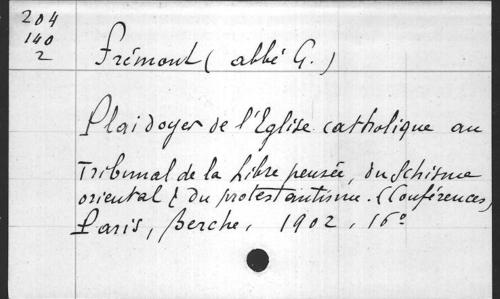 204
140
2
Frémont (abbé G.)
Plaidoyer de l'Eglise catholique au
Tribunal de la Libre pensée, du Schisme
oriental & du protestantisme. (Conférences)
Paris, Berche, 1902, 16°